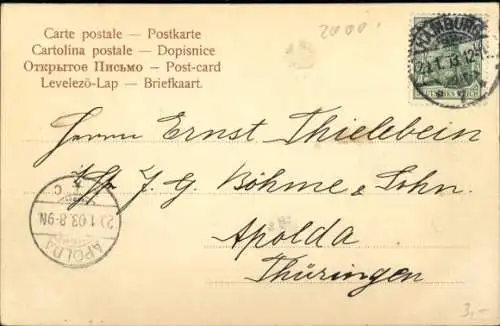 Carte postale — Postkarte
Cartolina postale — Dopisnice
Открытое Письмо — Post-card
Levelező-Lap — Briefkaart.
2000.
HAMBURG
DEUTSCHES REICH
Herrn Ernst Thielebein
J. G. Böhme & Sohn.
Apolda
Thüringen
APOLDA
1 03.8-9N.
3,-